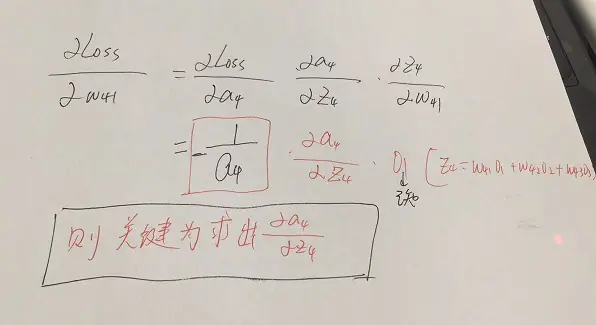 ∂Loss/∂w41 = ∂Loss/∂a4 ∂a4/∂z4 · ∂z4/∂w41
= -1/a4 · ∂a4/∂z4 · O1 [z4=w41O1+w42O2+w43O3]
↓
已知
则关键为求出 ∂a4/∂z4